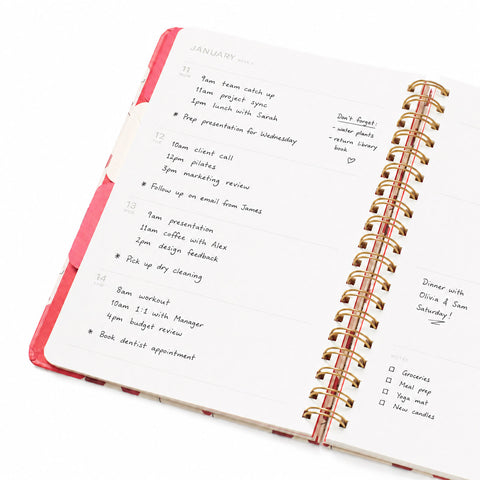 JANUARY
11
9am team catch up
11am project sync
1pm lunch with Sarah
* Prep presentation for Wednesday
Don't forget:
- water plants
- return library
book
12
10am client call
12pm pilates
3pm marketing review
* Follow up on email from James
13
9am presentation
11am coffee with Alex
2pm design feedback
* Pick up dry cleaning
14
8am workout
10am 1:1 with Manager
4pm budget review
* Book dentist appointment
Dinner with
Olivia & Sam
Saturday!
NOTES
Groceries
Meal prep
Yoga mat
New candles